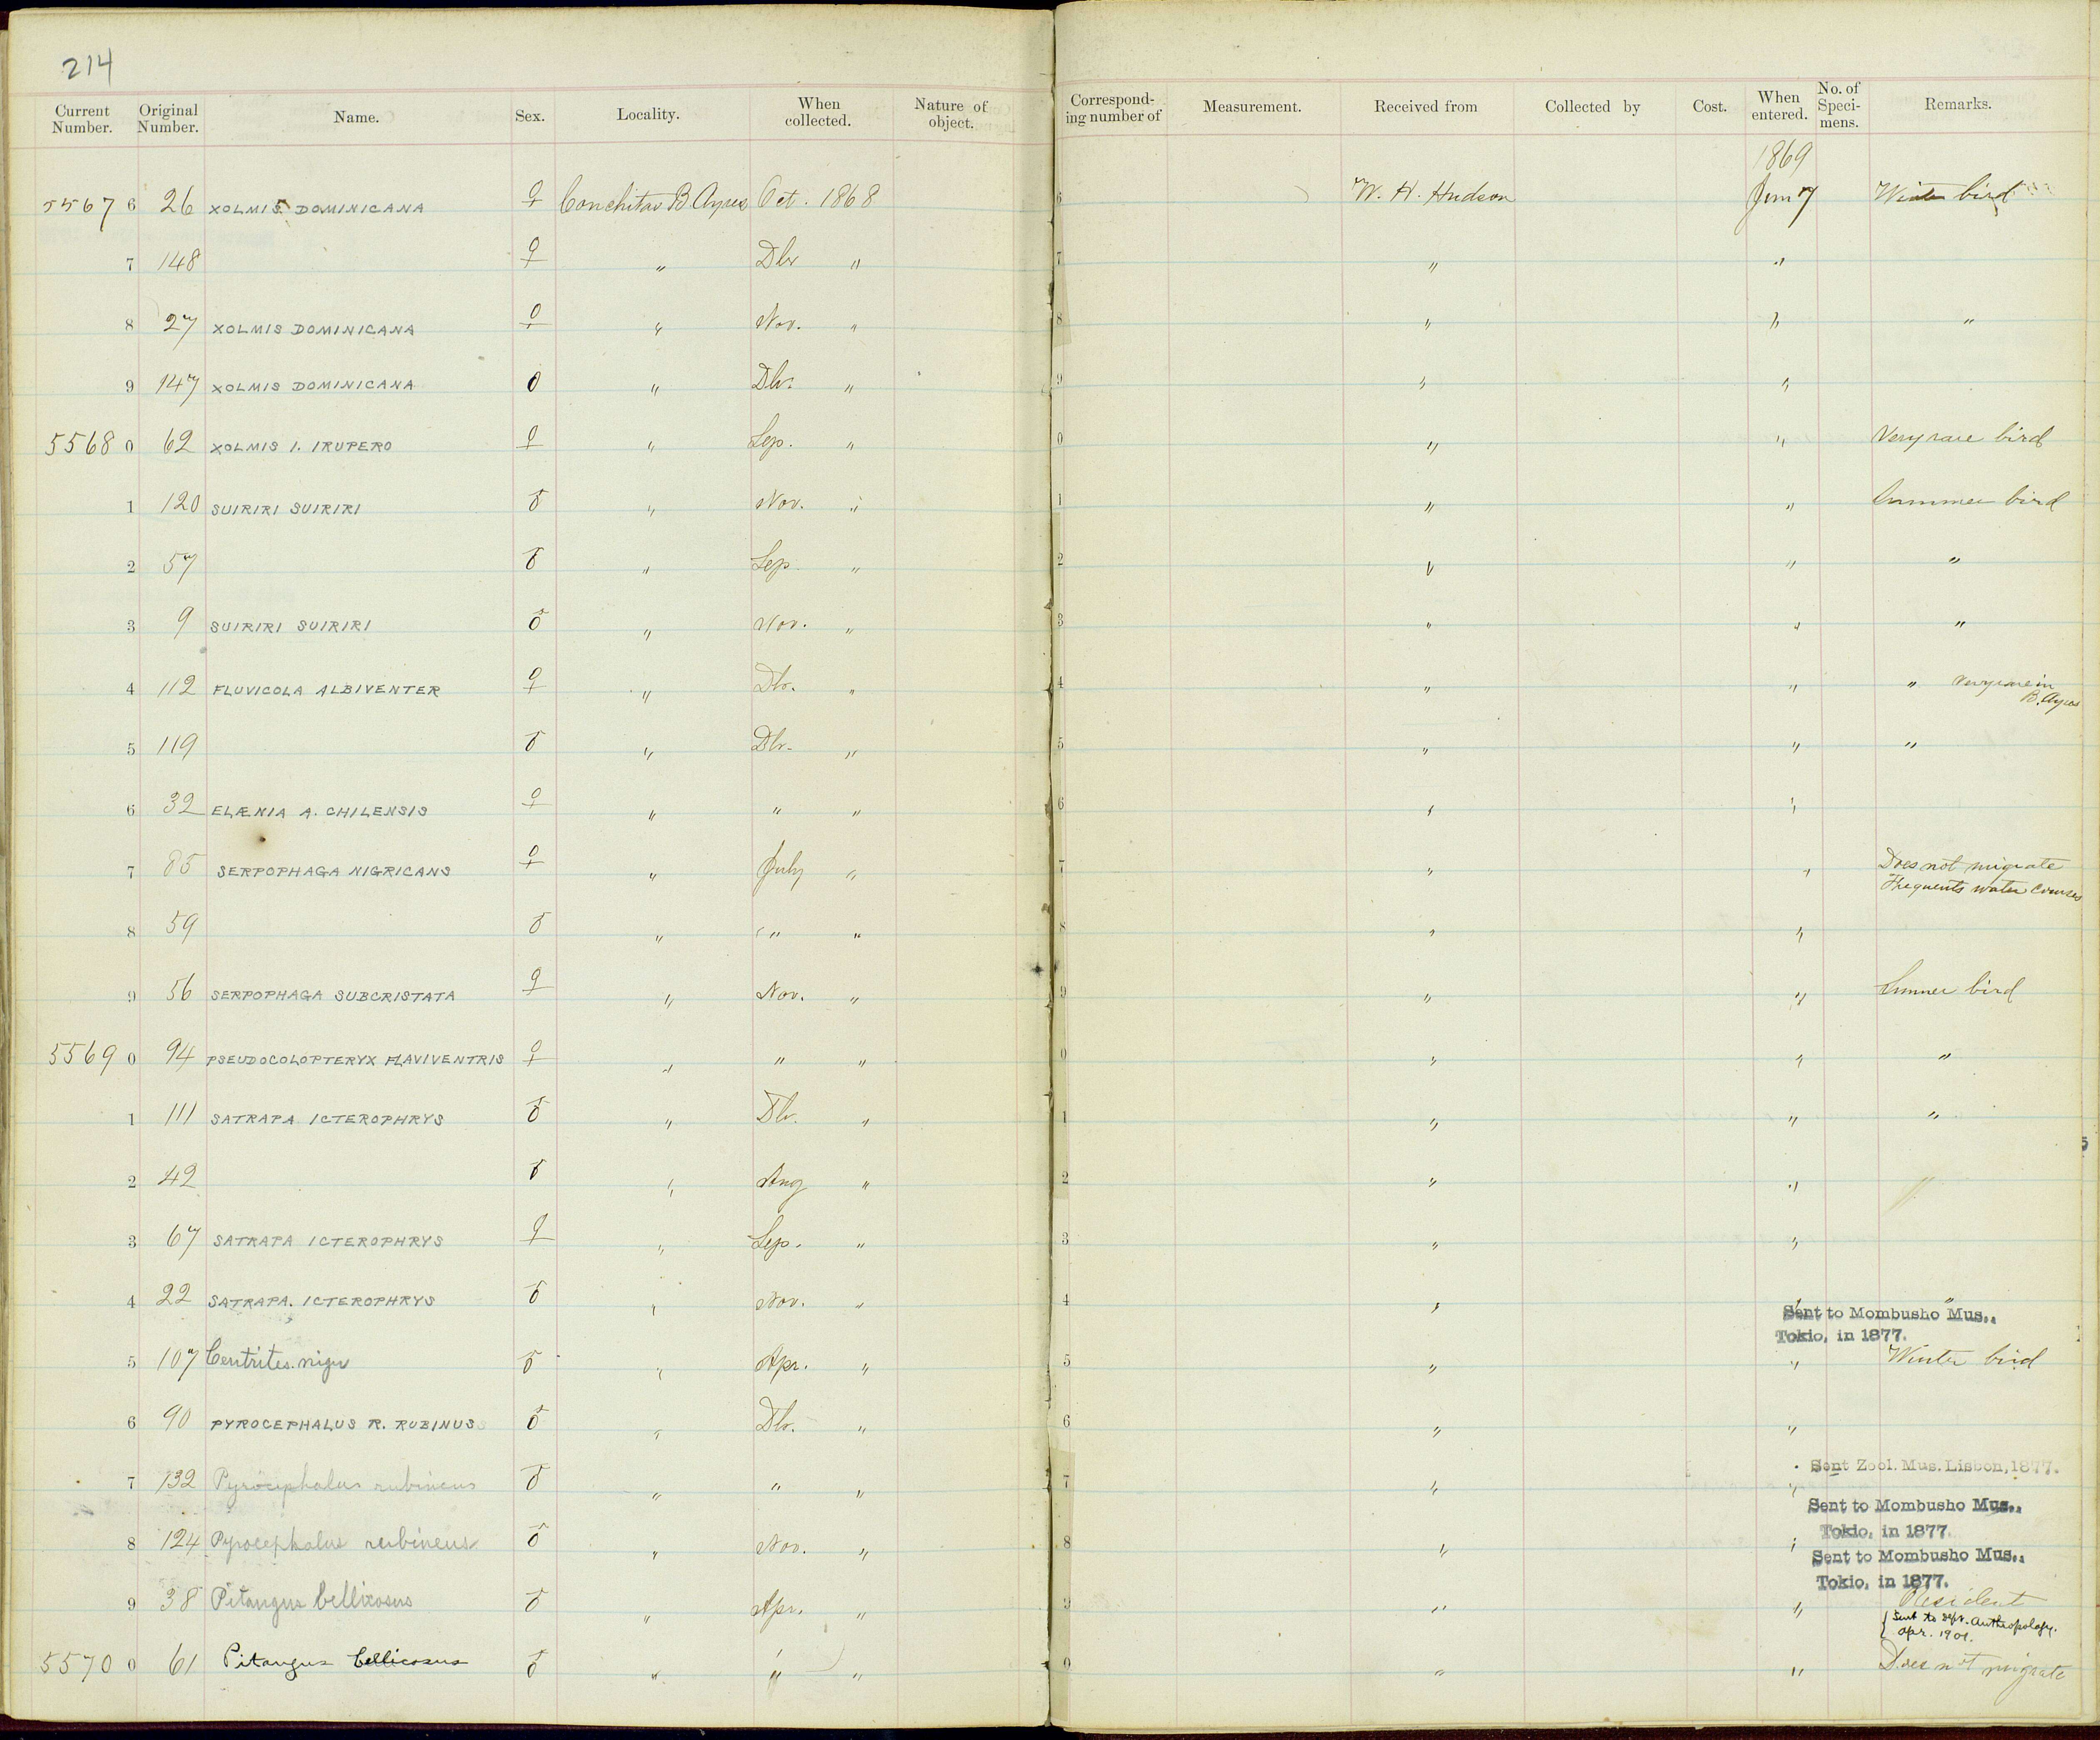 214
Current Number. Original Number. Name. Sex. Locality. When collected. Nature of object. Correspond-ing number of Measurement. Received from Collected by Cost. When entered. No. of Speci-mens. Remarks.
1869
5567 6 26 XOLMIS DOMINICANA ♀ Conchitas B Ayres Oct. 1868 6 W. H. Hudson Jun 7 Winter bird
7 148 ♀ " Dbr " 7 " "
8 27 XOLMIS DOMINICANA ♀ " Nov. " 8 " " "
9 147 XOLMIS DOMINICANA " Dbr. " 9 " "
5568 0 62 XOLMIS I. IRUPERO ♀ " Sep. " 0 " " Very rare bird
1 120 SUIRIRI SUIRIRI ♂ " Nov. " 1 " " Summer bird
2 57 ♂ " Sep. " 2 " " "
3 9 SUIRIRI SUIRIRI ♂ " Nov. " 3 " " "
4 112 FLUVICOLA ALBIVENTER ♀ " Dbr. " 4 " " " Very rare in
B. Ayres
5 119 ♂ " Dbr. " 5 " " "
6 32 ELÆNIA A. CHILENSIS ♀ " " " 6 " "
7 85 SERPOPHAGA NIGRICANS ♀ " July " 7 " " Does not migrate
Frequents water courses
8 59 ♂ " " " 8 " "
9 56 SERPOPHAGA SUBCRISTATA ♀ " Nov. " 9 " " Summer bird
5569 0 94 PSEUDOCOLOPTERYX FLAVIVENTRIS ♀ " " " 0 " " "
1 111 SATRAPA ICTEROPHRYS ♂ " Dbr. " 1 " " "
2 42 ♂ " Aug " 2 " " "
3 67 SATRAPA ICTEROPHRYS ♀ " Sep. " 3 " "
4 22 SATRAPA. ICTEROPHRYS ♂ " Nov. " 4 " " "
Sent to Mombusho Mus.,
Tokio, in 1877.
5 107 Centrites niger ♂ " Apr. " 5 " " Winter bird
6 90 PYROCEPHALUS R. RUBINUS ♂ " Dbr. " 6 " "
Sent Zool. Mus. Lisbon, 1877.
7 132 Pyrocephalus rubineus ♂ " " " 7 " "
Sent to Mombusho Mus.,
Tokio, in 1877.
8 124 Pyrocephalus rubineus ♂ " Nov. " 8 " "
Sent to Mombusho Mus.,
Tokio, in 1877.
9 38 Pitangus bellicosus ♂ " Apr. " 9 " " Resident
Sent to Dept. Anthropology.
Apr. 1901.
5570 0 61 Pitangus bellicosus ♂ " " " 0 " " Does not migrate